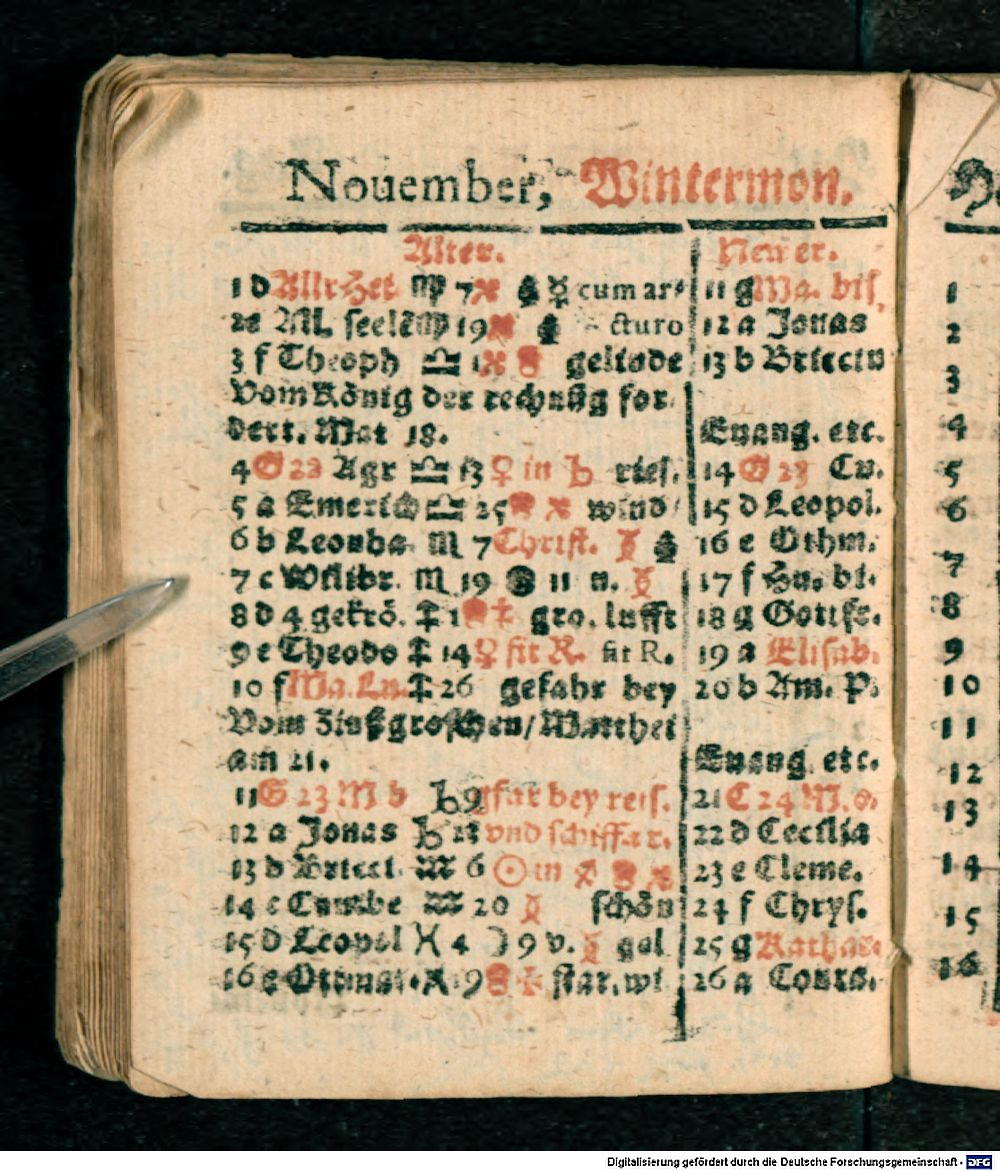 Nouember, Wintermon.
Alter. Newer.
1 d Allr Hei ♍ 7 ☿ cum ar⸗ 11 g Ma. bis.
2 e All. seelē ♍ 19 cturo 12 a Jonas
3 f Theoph ♎ 1 gelinde 13 b Briccin
Vom König der rechnūg for⸗
dert. Mat 18. Euang. etc.
4 G 22 Agr ♎ 13 ♀ in ♄ ries. 14 G 23 Cu.
5 a Emerich ♎ 25 wind 15 d Leopol.
6 b Leonha ♏ 7 Christ. 16 e Othm.
7 c Wilibr. ♏ 19 11 n. 17 f Hu. bi.
8 d 4 gekrö. 1 gro. lufft 18 g Gottfr.
9 e Theodo 14 ♀ fit R. fit R. 19 a Elisab.
10 f Ma. Lu. 26 gefahr bey 20 b Am. P.
Vom Zinßgroschen/ Matthei
am 21. Euang. etc.
11 G 23 M b 9 gfar bey reis. 21 C 24 M. o.
12 a Jonas 21 vnd schiffar. 22 d Cecilia
13 b Bricci. ♒ 6 ☉ in ♐ 23 e Cleme.
14 c Cunibe ♒ 20 schön 24 f Chrys.
15 d Leopol ♓ 4 ☽ 9 v. gel 25 g Kathar.
16 e Othmar. ♓ 19 star. wi 26 a Conra.
1
2
3
4
5
6
7
8
9
10
11
12
13
14
15
16
Digitalisierung gefördert durch die Deutsche Forschungsgemeinschaft - DFG